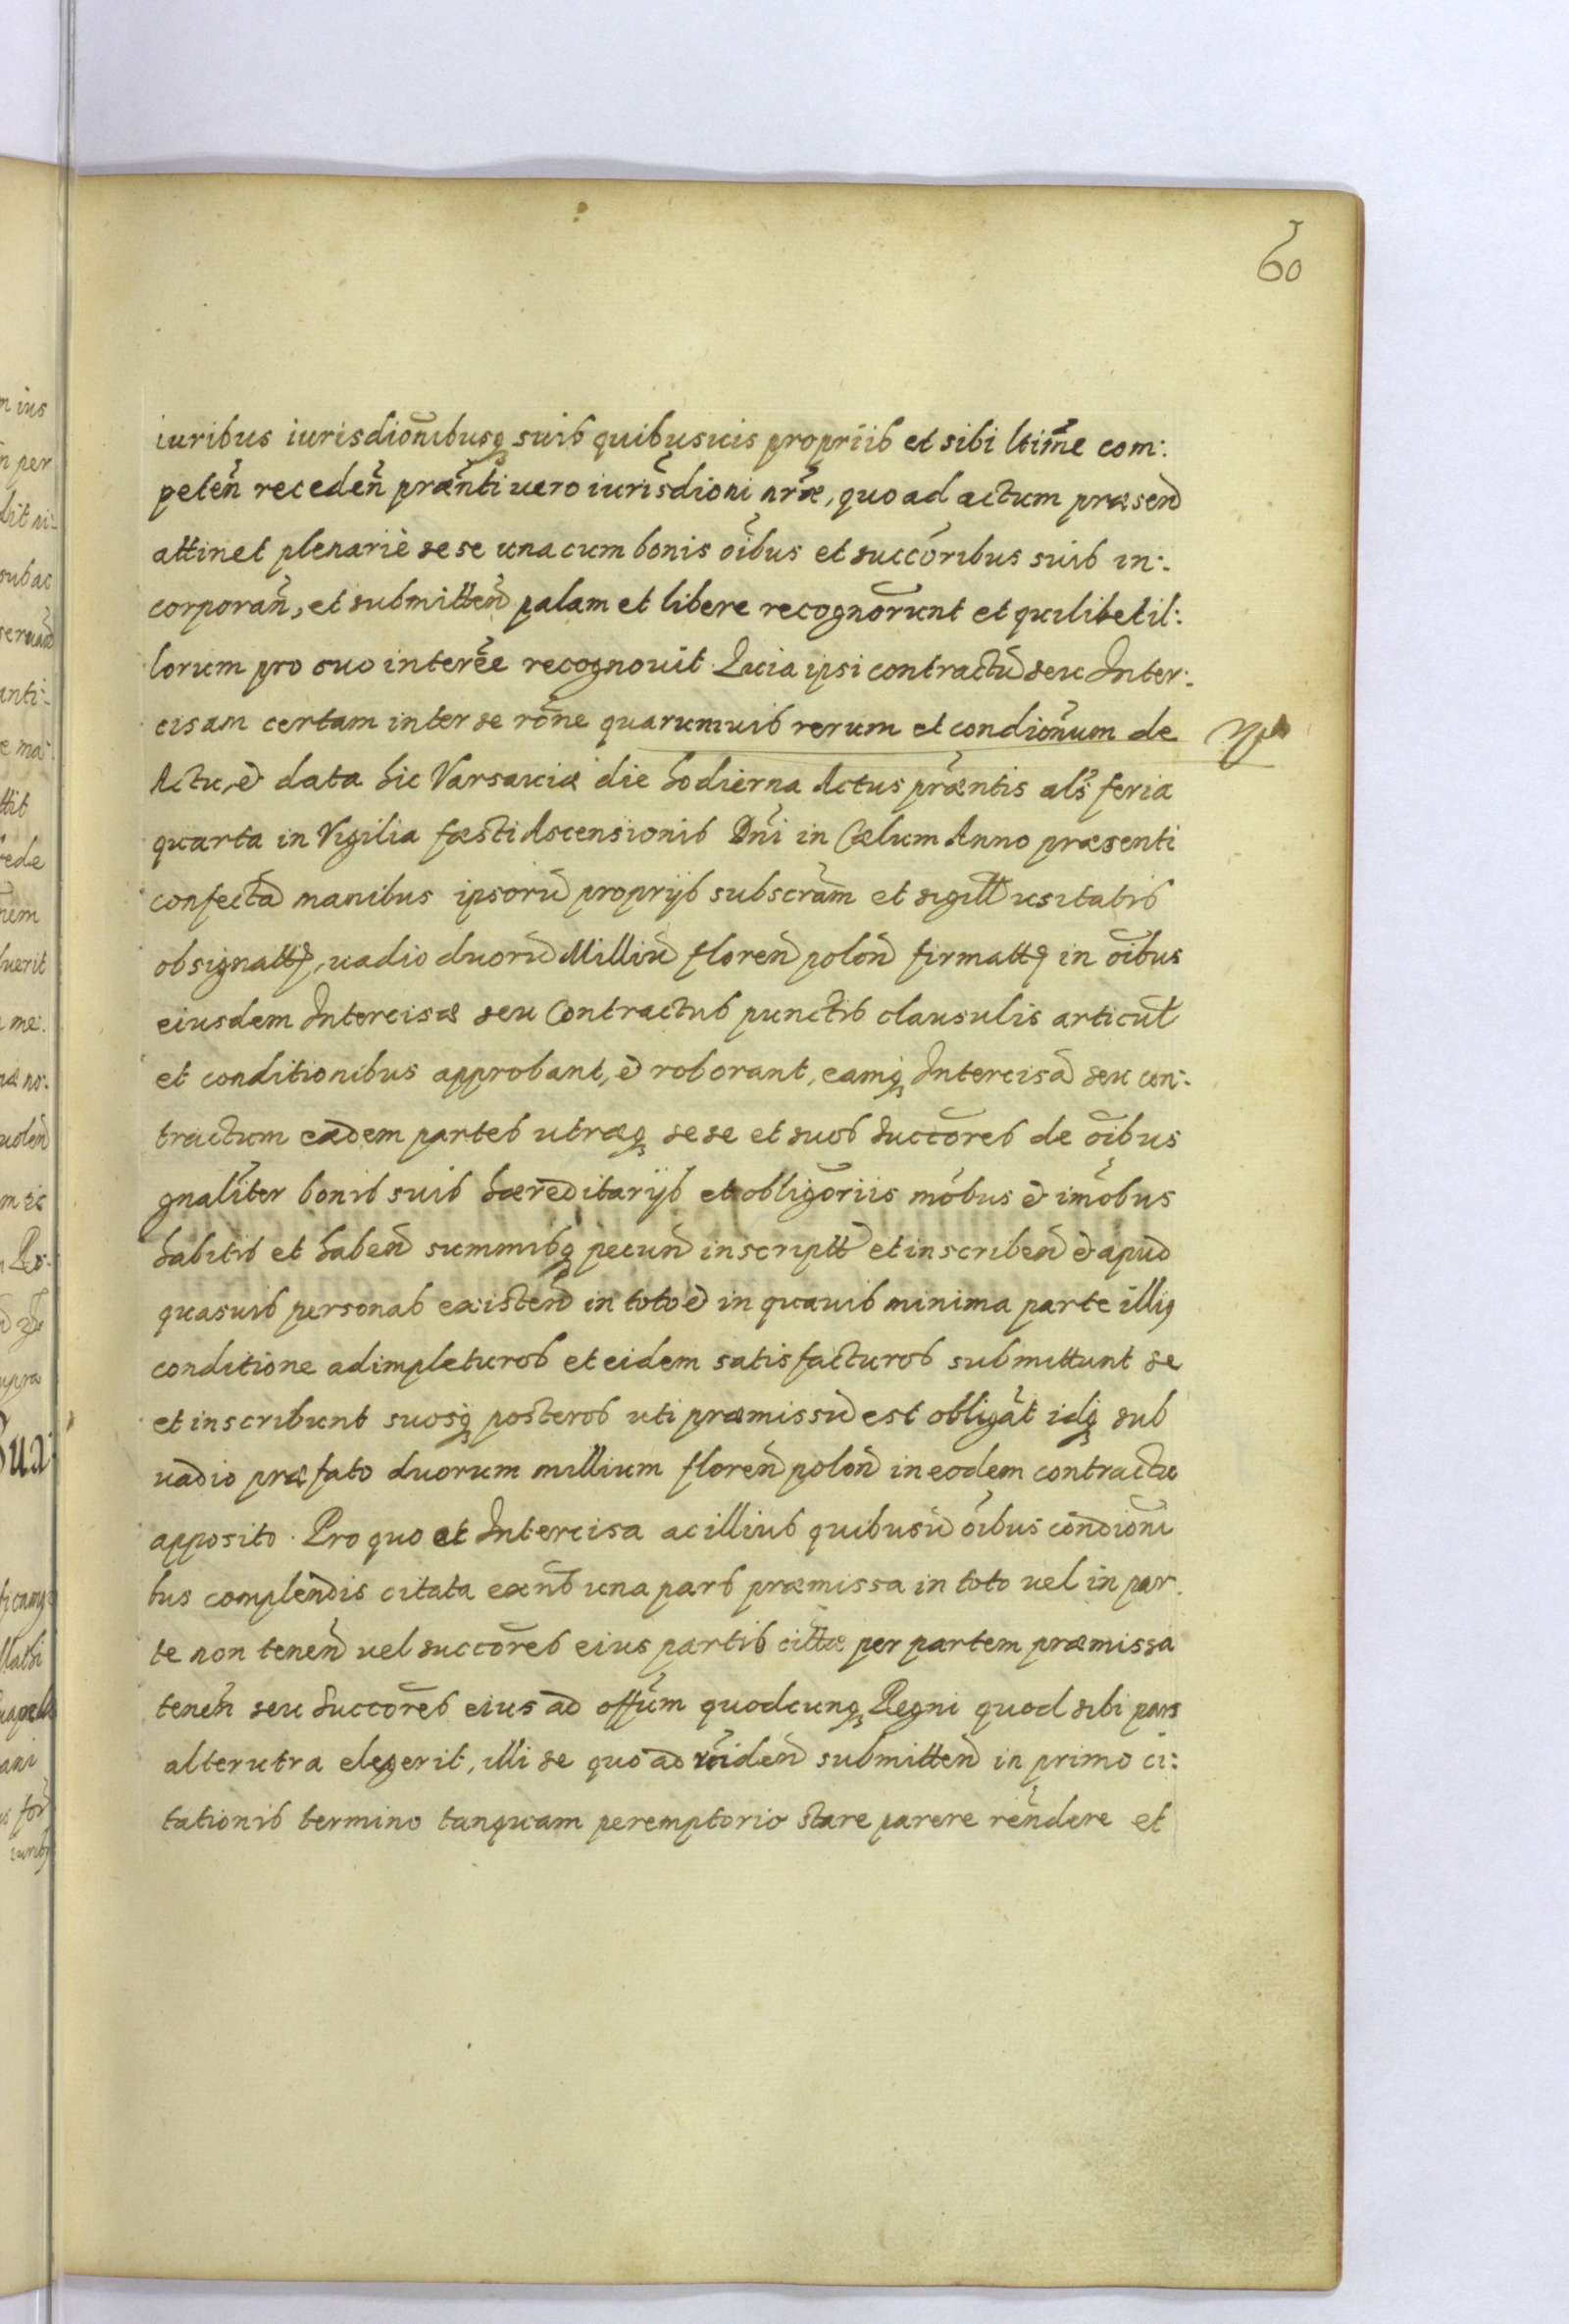 60
iuribus iurisdiõnibusq suis quibusuis proprijs et sibi ltime com:
peteñ recedeñ præñti uero iurisdioni nræ, quo ad actum præsend
attinet plenariè sese unacum bonis oĩbus et succõribus suis in:
corporañ, et submitteñ palam et libere recognõrunt et quilibet il:
lorum pro suo interẽe recognouit Quia ipsi contractũ seu Inter:
cisam certam inter se rõne quarumuis rerum et condiõnum de
Actu, et data hic Varsauiæ die hodierna Actus præntis als feria
quarta in Vigilia fæsti Ascensionis Dñi in Cælum Anno præsenti
confectã manibus ipsorũ proprijs subscrãm et sigill usitatis
obsignatt, uadio duorũ Milliũ floreñ poloñ firmatt in oĩbus
eiusdem Intercisæ seu Contractus punctis clausulis articul
et conditionibus approbant, et roborant, eamq Intercisã seu con:
tractum eædem partes utræq sese et suos succõres de oĩbus
gnaliter bonis suis hæreditarijs et obligõriis mõbus et imõbus
habitis et habeñ summisq pecuñ inscriptt et inscribeñ et apud
quasuis personas existeñ in toto et in quauis minima parte illius
conditione adimpleturos et eidem satisfacturos submittunt se
et inscribunt suosq posteros uti præmissũ est obligãt idq sub
uadio præfato duorum millium floreñ poloñ in eodem contractu
apposito. Pro quo et Intercisa ac illius quibusũ oĩbus condioni
bus complendis citata exñs una pars præmissa in toto uel in par
te non teneñ uel succõres eius partis cittæ per partem præmissa
teneñ seu Succõres eius ad offũm quodcunq Regni quod sibi pars
alterutra elegerit, illi se quo ad rñideñ submitteñ in primo ci:
tationis termino tanquam peremptorio stare parere rẽndere et